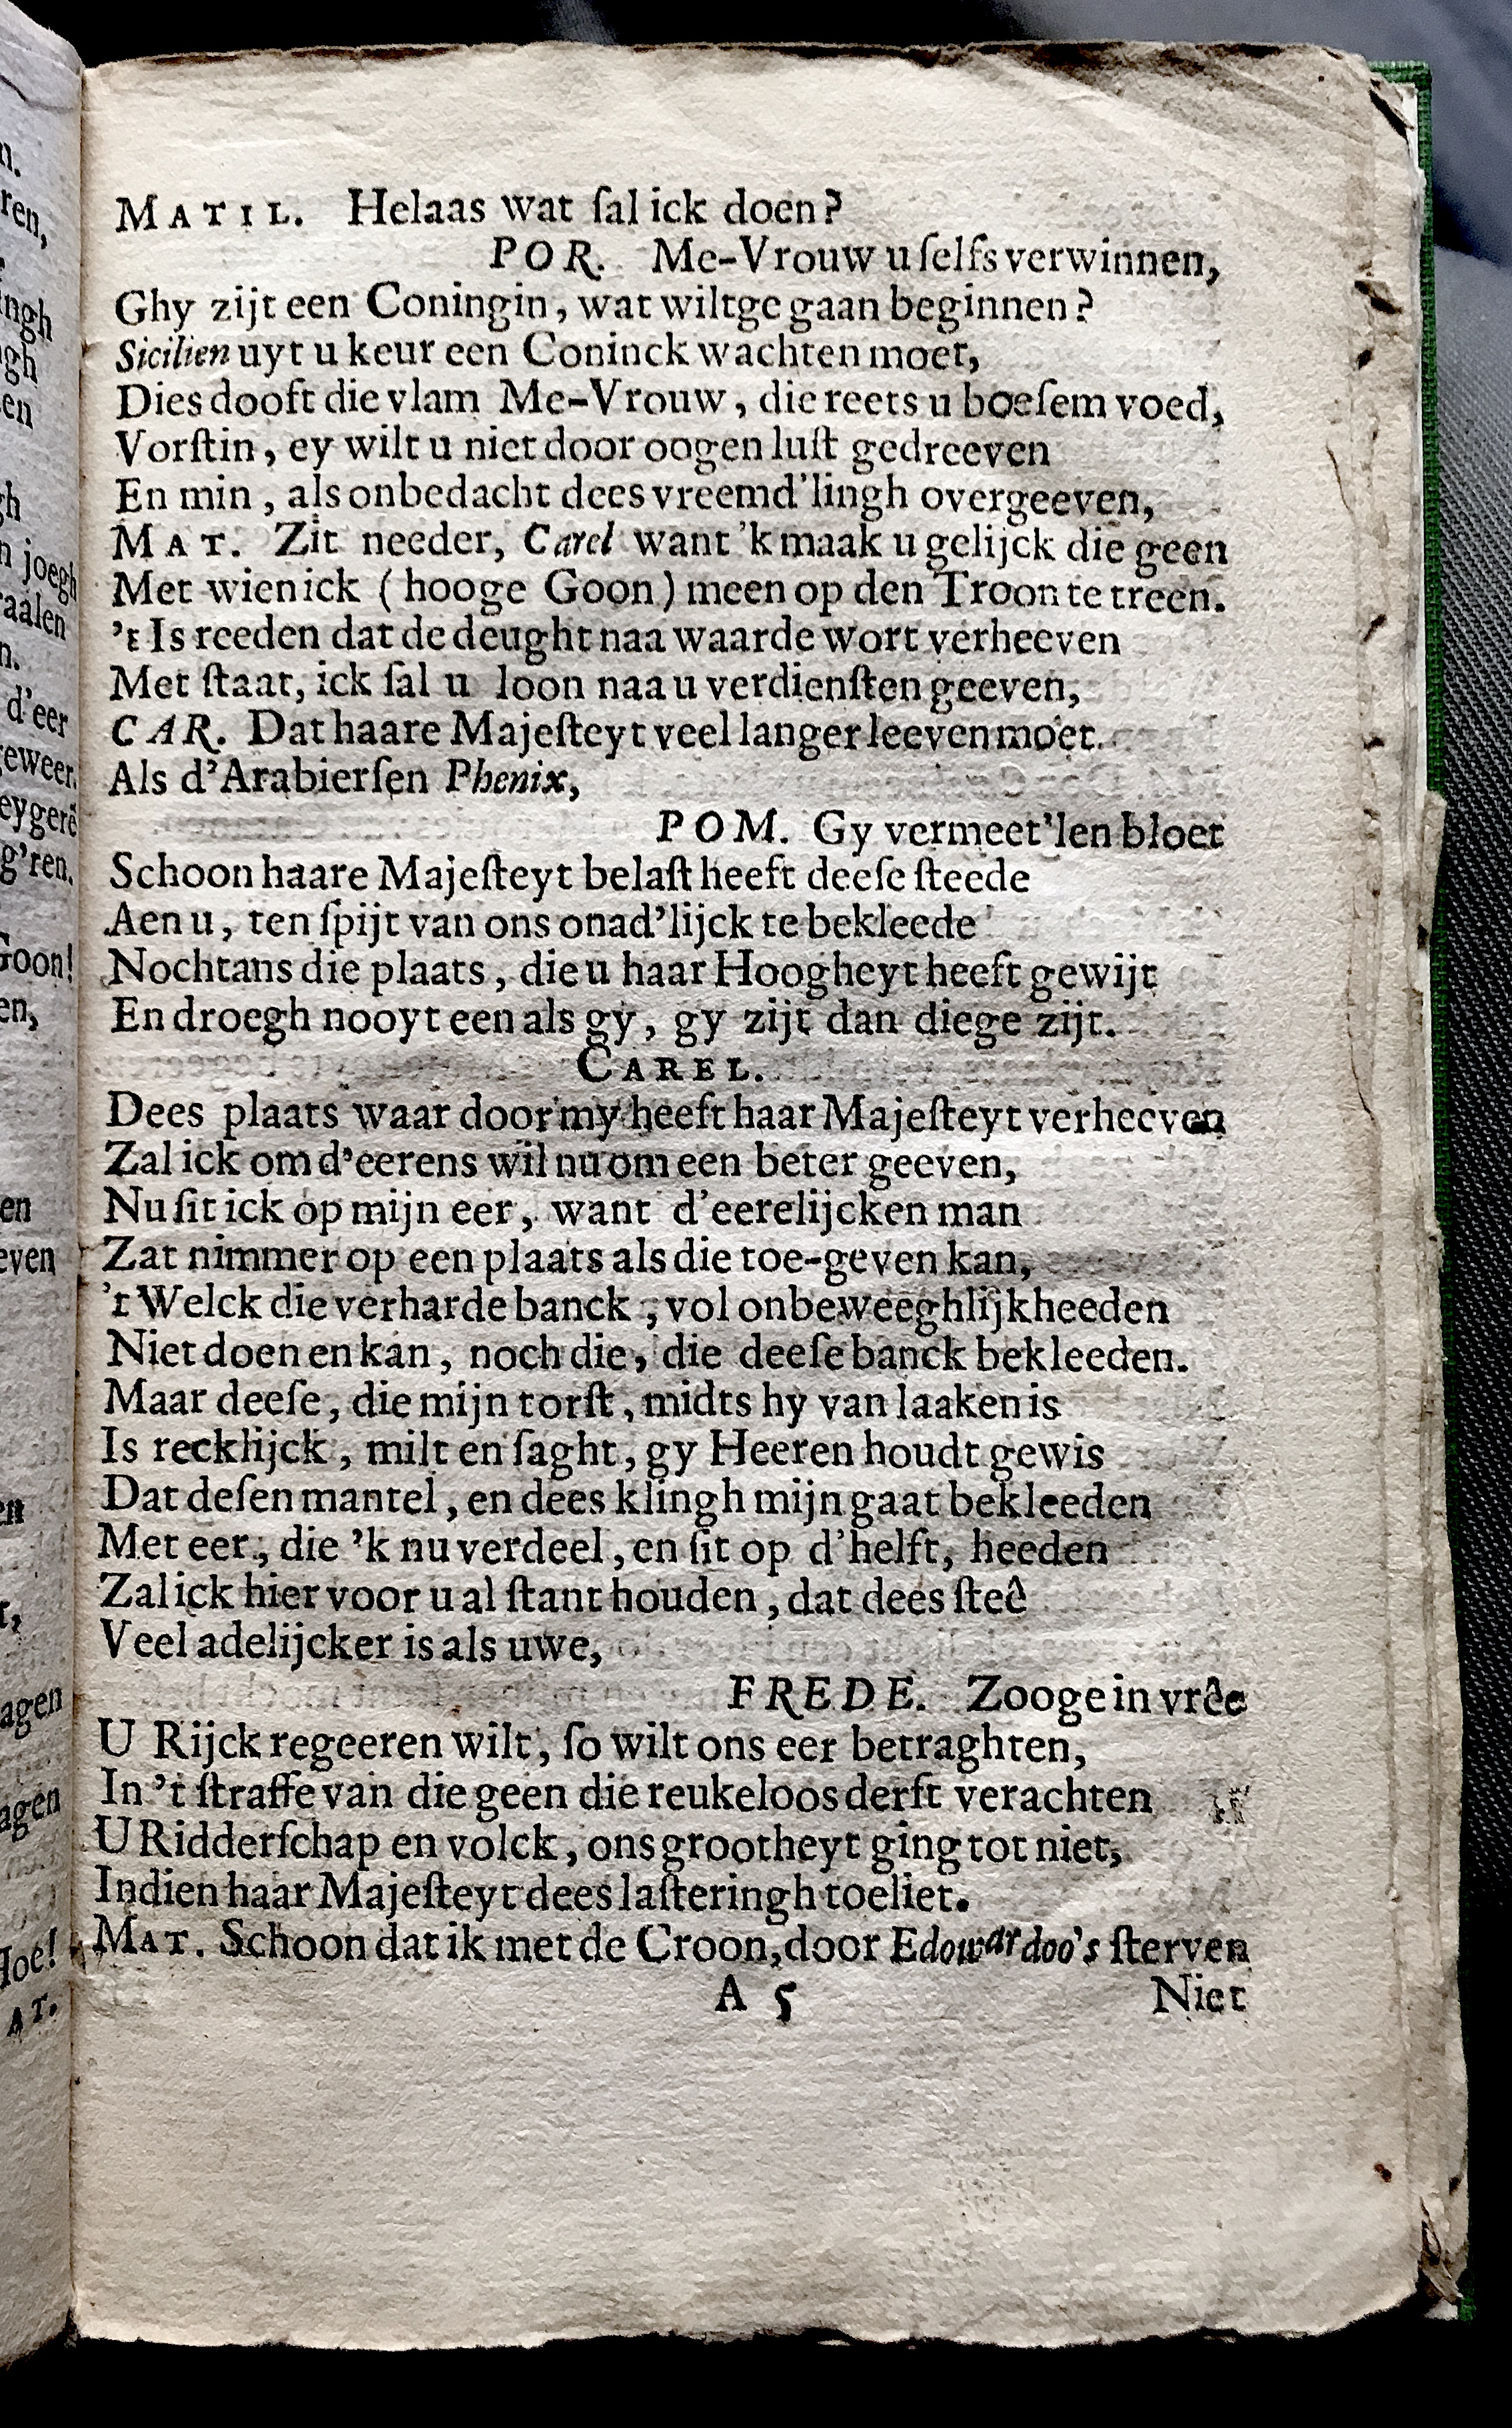 MATIL. Helaas wat ſal ick doen?
POR. Me-Vrouw u ſelfs verwinnen,
Ghy zijt een Coningin, wat wiltge gaan beginnen?
Sicilien uyt u keur een Coninck wachten moet,
Dies dooft die vlam Me-Vrouw, die reets u boeſem voed,
Vorſtin, ey wilt u niet door oogen luſt gedreeven
En min, als onbedacht dees vreemd'lingh overgeeven,
MAT. Zit needer, Carel want 'k maak u gelijck die geen
Met wien ick (hooge Goon) meen op den Troon te treen.
't Is reeden dat de deught naa waarde wort verheeven
Met ſtaat, ick ſal u loon naa u verdienſten geeven,
CAR. Dat haare Majeſteyt veel langer leeven moet.
Als d'Arabierſen Phenix,
POM. Gy vermeet'len bloet
Schoon haare Majeſteyt belaſt heeft deeſe ſteede
Aen u, ten ſpijt van ons onad'lijck te bekleede
Nochtans die plaats, die u haar Hoogheyt heeft gewijt
En droegh nooyt een als gy, gy zijt dan die ge zijt.
CAREL.
Dees plaats waar door my heeft haar Majeſteyt verheeven
Zal ick om d'eerens wil nu om een beter geeven,
Nu ſit ick op mijn eer, want d'eerelijcken man
Zat nimmer op een plaats als die toe-geven kan,
't Welck die verharde banck, vol onbeweeghlijkheeden
Niet doen en kan, noch die, die deeſe banck bekleeden.
Maar deeſe, die mijn torſt, midts hy van laaken is
Is recklijck, milt en ſaght, gy Heeren houdt gewis
Dat deſen mantel, en dees klingh mijn gaat bekleeden
Met eer, die 'k nu verdeel, en ſit op d'helft, heeden
Zal ick hier voor u al ſtant houden, dat dees ſteê
Veel adelijcker is als uwe,
FREDE. Zoo ge in vrêe
U Rijck regeeren wilt, ſo wilt ons eer betraghten,
In 't ſtraffe van die geen die reukeloos derft verachten
U Ridderſchap en volck, ons grootheyt ging tot niet,
Indien haar Majeſteyt dees laſteringh toeliet.
MAT. Schoon dat ik met de Croon, door Edowardoo's ſterven
A 5 Niet